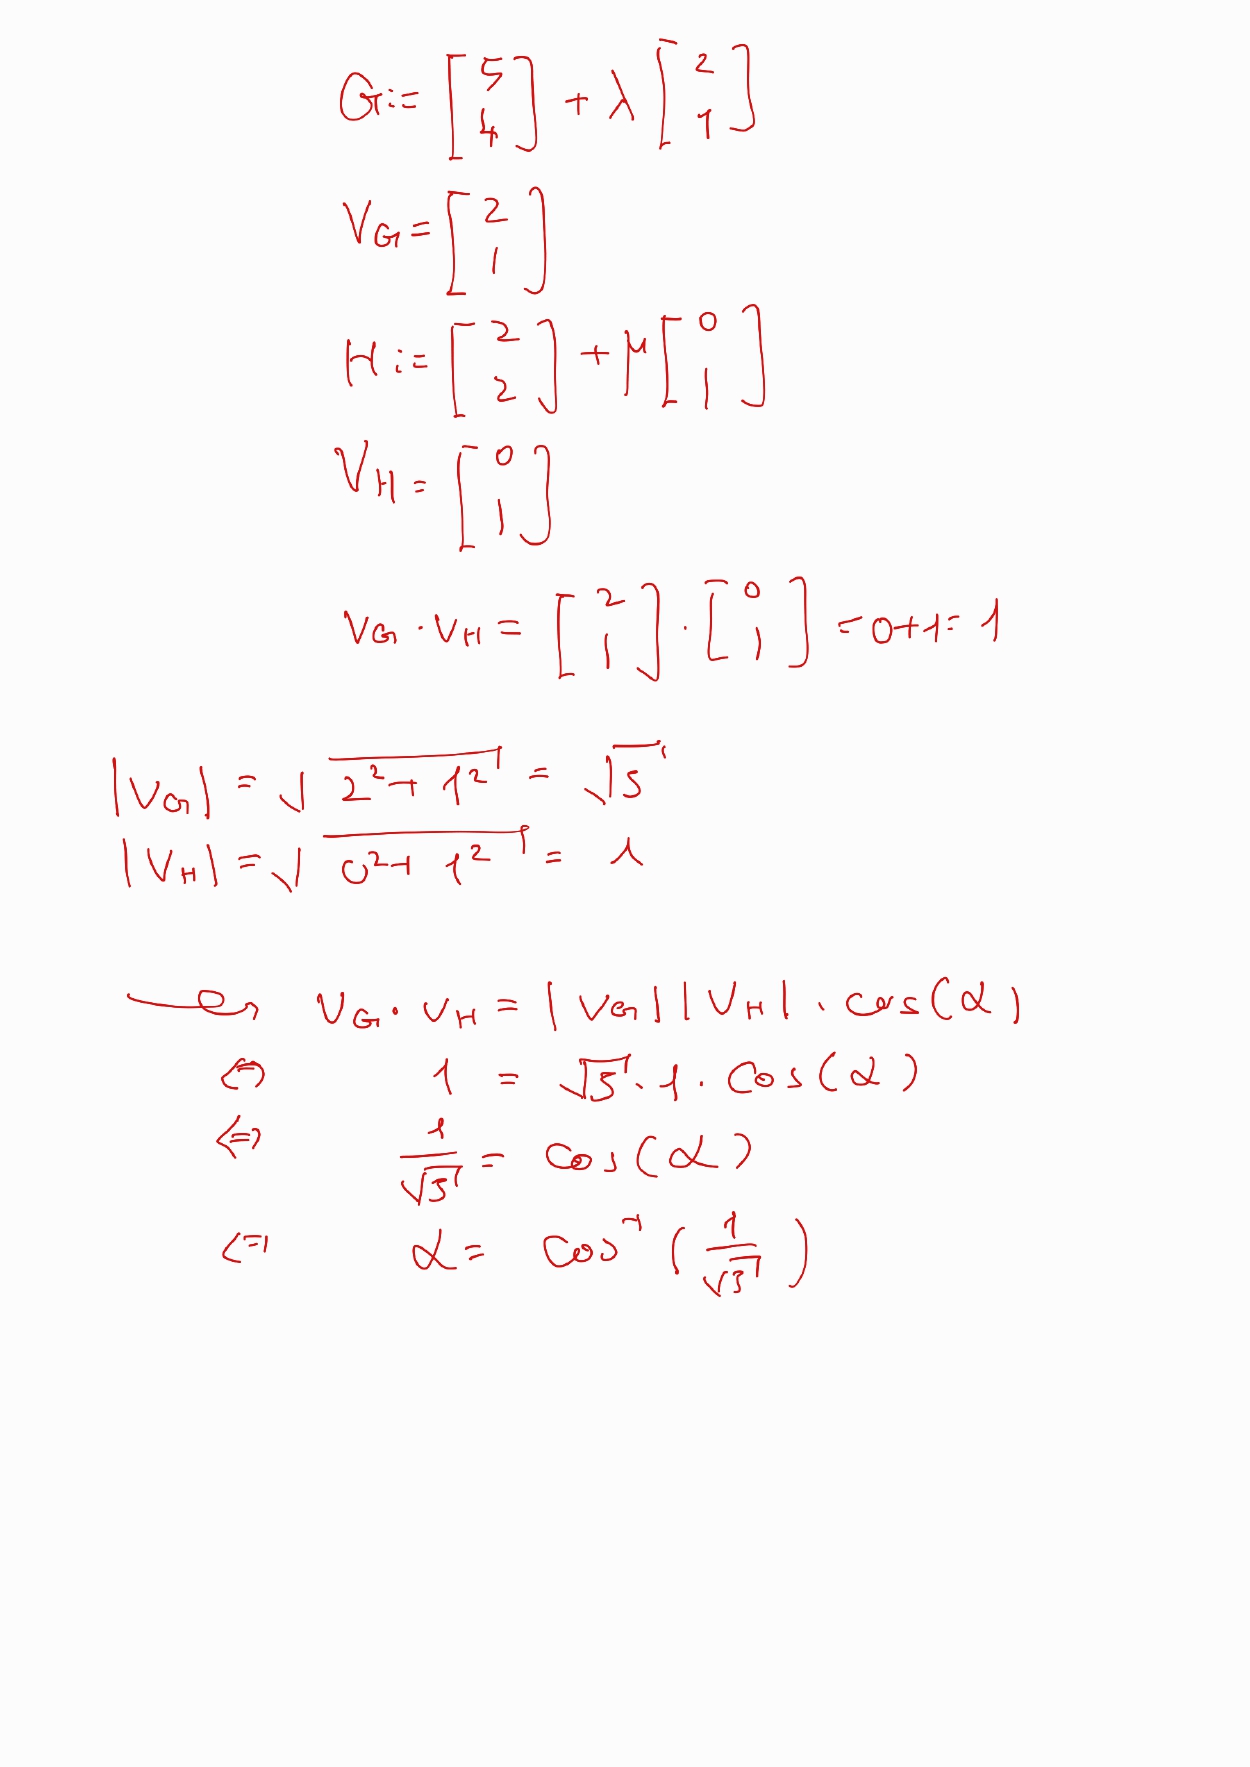 G := [5 4] + λ [2 1]
V_G = [2 1]
H := [2 2] + μ [0 1]
V_H = [0 1]
V_G · V_H = [2 1] · [0 1] = 0+1 = 1
|V_G| = √(2² + 1²) = √5
|V_H| = √(0² + 1²) = 1
→ V_G · V_H = |V_G| |V_H| · cos(α)
⇔ 1 = √5 · 1 · cos(α)
⇔ 1/√5 = cos(α)
⇔ α = cos⁻¹ (1/√5)